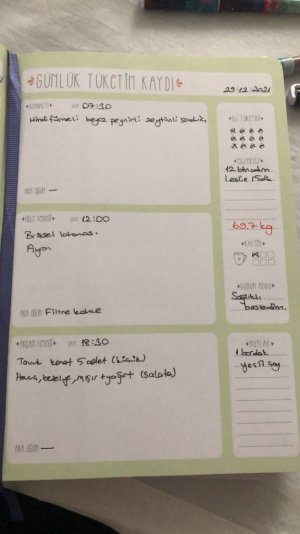 GÜNLÜK TÜKETİM KAYDI
29/12/2021
KAHVALTI SAAT 07:30
Hindi fümeli beyaz peynirli zeytinli
ARA ÖĞÜN —
SU TÜKETİMİ
EGZERSİZ
12 bin adım
Leslie 15dk
69.7 kg
ÖĞLE YEMEĞİ SAAT 12:00
Brüksel lahanası
Ayran
ARA ÖĞÜN Filtre kahve
KAFEİN
GÜNÜN MODU
Sağlıklı
beslendim.
AKŞAM YEMEĞİ SAAT 18:30
Tavuk kanat 5 adet (küçük)
Havuç, bezelye, mısır + yoğurt (salata)
ARA ÖĞÜN —
NOTLAR
1 bardak
yeşil çay